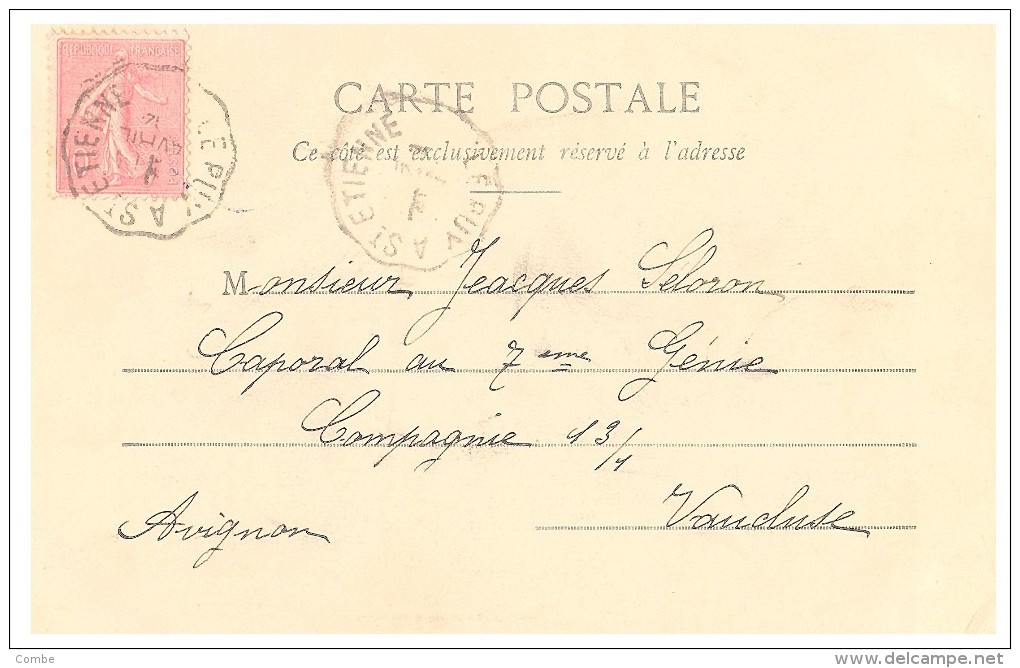 REPUBLIQUE FRANÇAISE
LE PUY A ST ETIENNE
AVRIL
CARTE POSTALE
LE PUY A ST ETIENNE
Ce côté est exclusivement réservé à l'adresse
Monsieur Jeacques Seloron
Caporal au 7eme Génie
Compagnie 13/1
Vaucluse
Avignon
Combe
delcampe.net